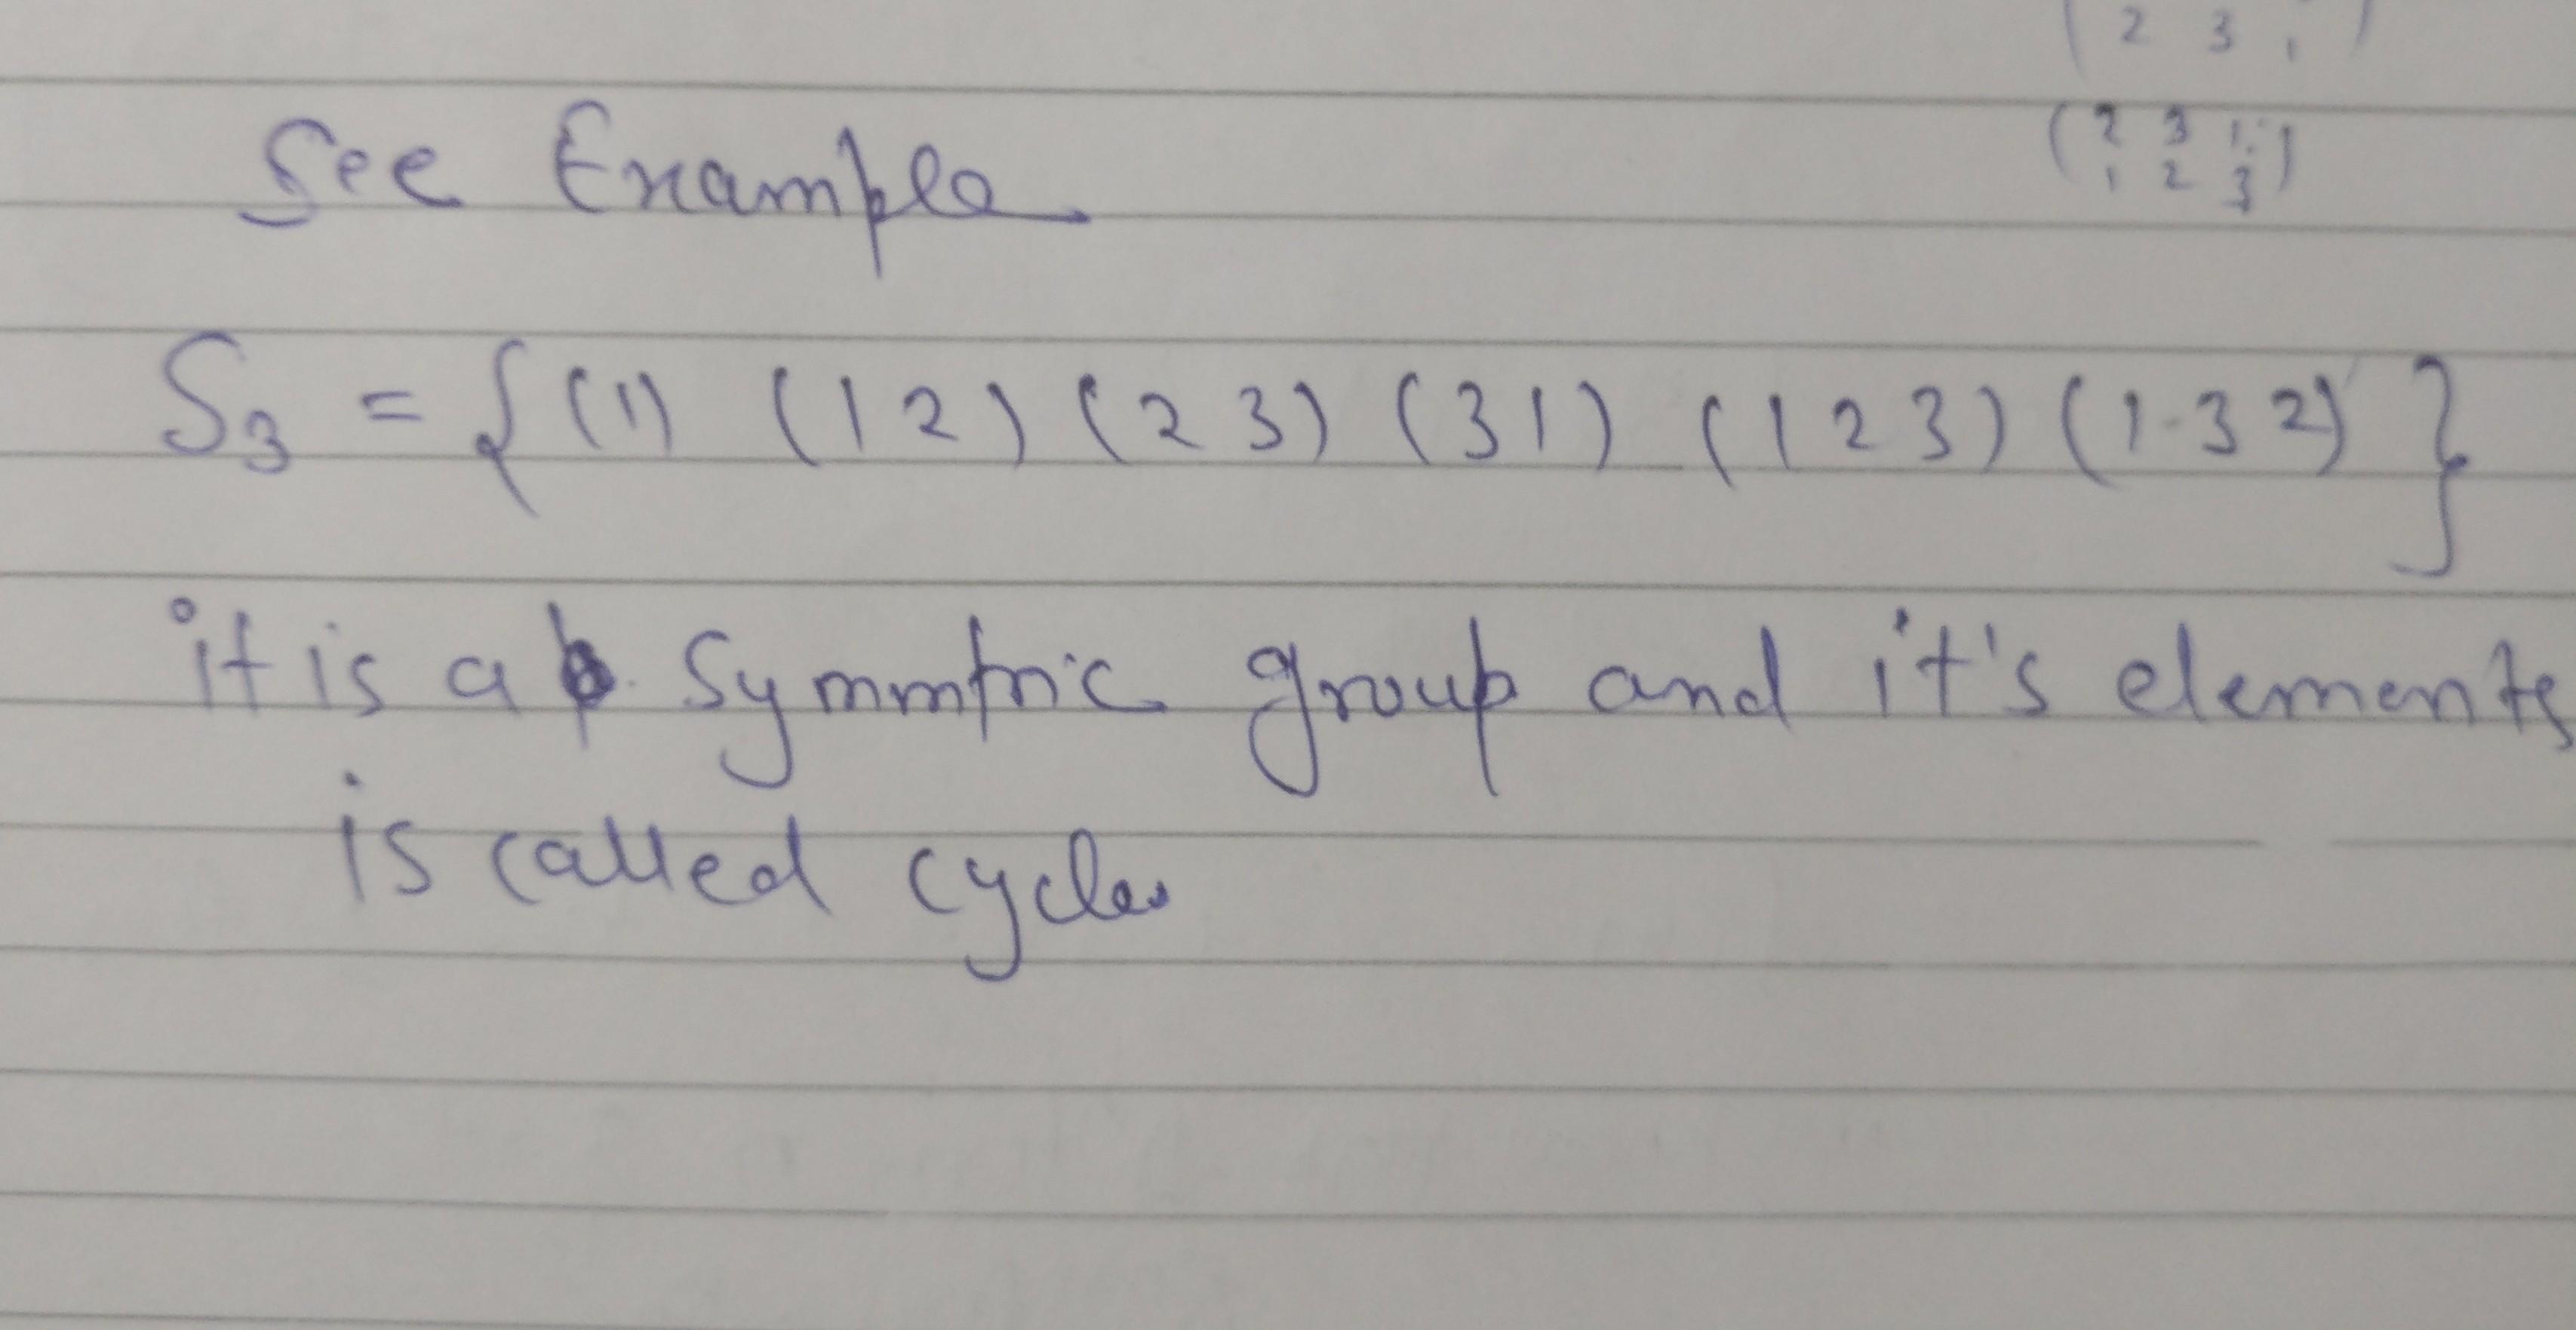 ( 2 3 1 )
( 2 3 1 )
1 2 3
See Example
S3 = { (1) (1 2) (2 3) (3 1) (1 2 3) (1 3 2) }
it is a Symmtric group and it's elements
is called cycles